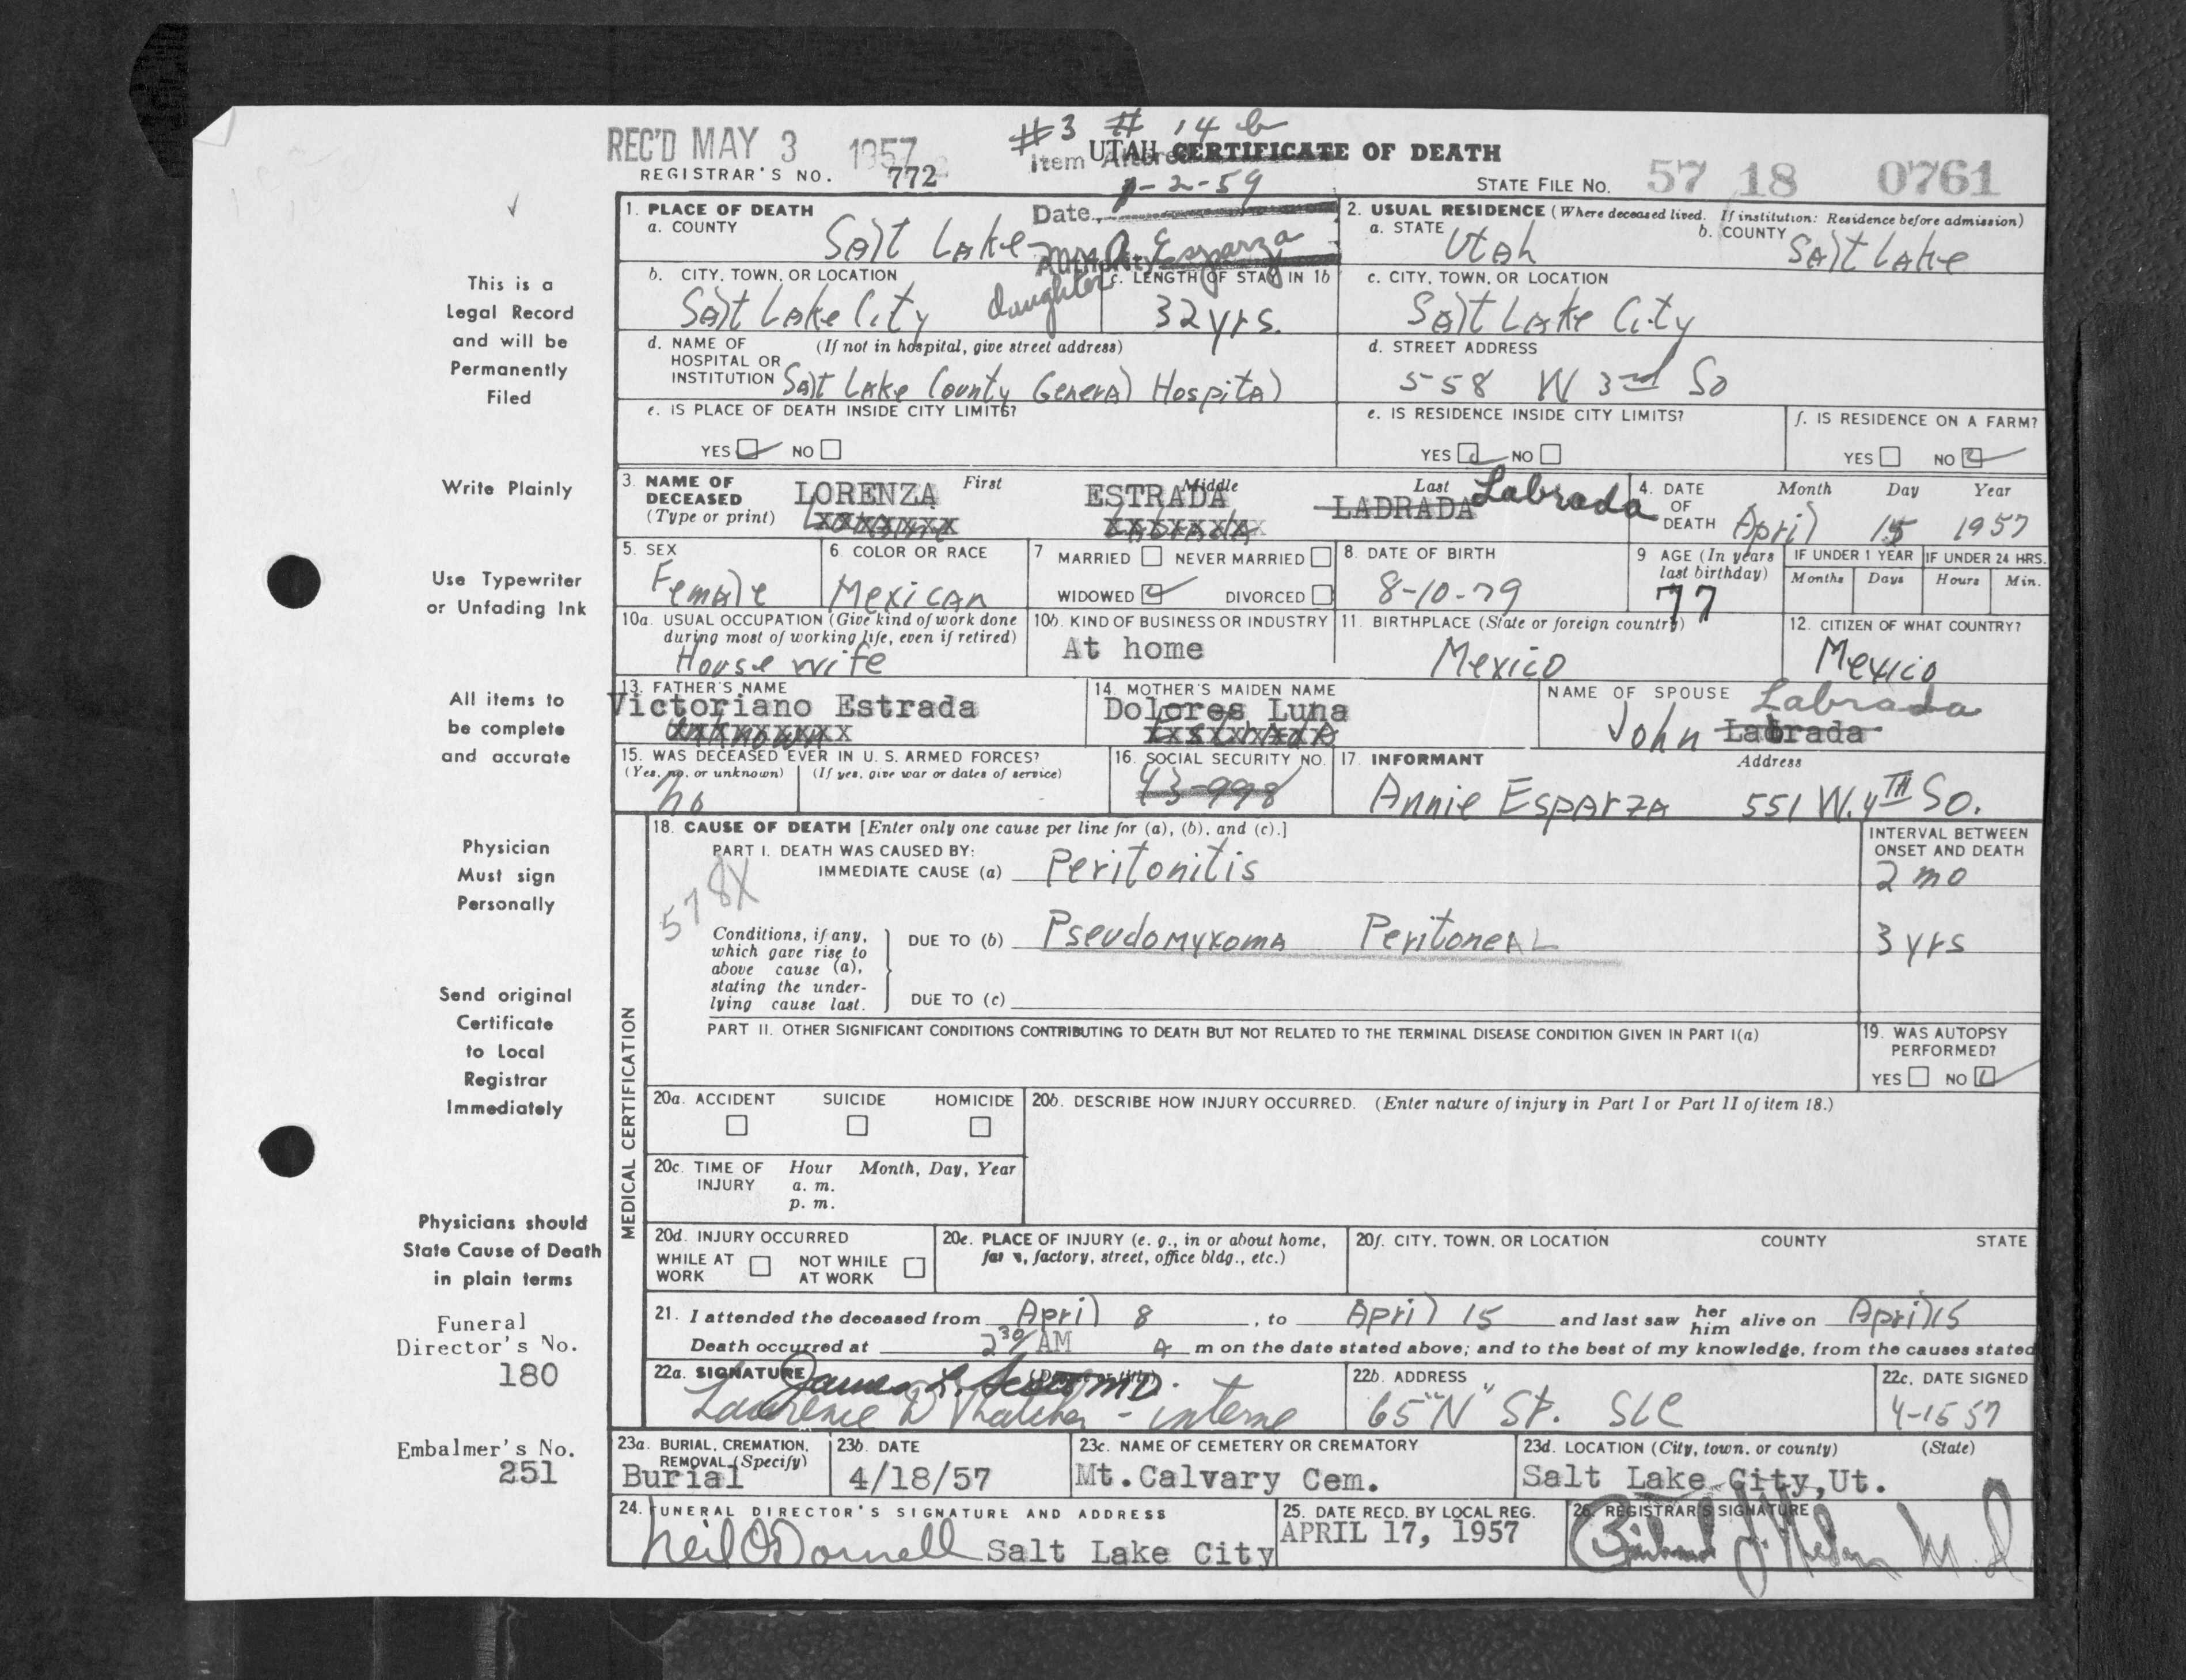 REC'D MAY 3 1957
#3 # 14 b
UTAH CERTIFICATE OF DEATH
Item Altered
REGISTRAR'S NO. 772
1-2-59
STATE FILE NO. 57 18 0761
1. PLACE OF DEATH
Date
a. COUNTY Salt Lake
A Esparza
daughter
2. USUAL RESIDENCE (Where deceased lived. If institution: Residence before admission)
a. STATE Utah b. COUNTY Salt Lake
b. CITY, TOWN, OR LOCATION Salt Lake City
c. LENGTH OF STAY IN 1b 32 yrs.
c. CITY, TOWN, OR LOCATION Salt Lake City
d. NAME OF HOSPITAL OR INSTITUTION (If not in hospital, give street address) Salt Lake County General Hospital
d. STREET ADDRESS 558 W 3rd So
e. IS PLACE OF DEATH INSIDE CITY LIMITS?
YES NO
e. IS RESIDENCE INSIDE CITY LIMITS?
YES NO
f. IS RESIDENCE ON A FARM?
YES NO
3. NAME OF DECEASED (Type or print) First Middle Last
LORENZA ESTRADA LADRADA Labrada
4. DATE OF DEATH Month Day Year
April 15 1957
5. SEX Female
6. COLOR OR RACE Mexican
7 MARRIED NEVER MARRIED
WIDOWED DIVORCED
8. DATE OF BIRTH 8-10-79
9 AGE (In years last birthday) 77
IF UNDER 1 YEAR Months Days
IF UNDER 24 HRS. Hours Min.
10a. USUAL OCCUPATION (Give kind of work done during most of working life, even if retired) Housewife
10b. KIND OF BUSINESS OR INDUSTRY At home
11. BIRTHPLACE (State or foreign country) Mexico
12. CITIZEN OF WHAT COUNTRY? Mexico
13. FATHER'S NAME
Victoriano Estrada
Unknown
14. MOTHER'S MAIDEN NAME
Dolores Luna
NAME OF SPOUSE Labrada
John Labrada
15. WAS DECEASED EVER IN U. S. ARMED FORCES?
(Yes, no, or unknown) (If yes, give war or dates of service)
No
16. SOCIAL SECURITY NO.
43-998
17. INFORMANT Address
Annie Esparza 551 W. 4TH So.
MEDICAL CERTIFICATION
18. CAUSE OF DEATH [Enter only one cause per line for (a), (b), and (c).]
INTERVAL BETWEEN ONSET AND DEATH
PART I. DEATH WAS CAUSED BY:
IMMEDIATE CAUSE (a) Peritonitis 2 mo
578X
Conditions, if any, which gave rise to above cause (a), stating the underlying cause last.
DUE TO (b) Pseudomyxoma Peritoneal 3 yrs
DUE TO (c)
PART II. OTHER SIGNIFICANT CONDITIONS CONTRIBUTING TO DEATH BUT NOT RELATED TO THE TERMINAL DISEASE CONDITION GIVEN IN PART I(a)
19. WAS AUTOPSY PERFORMED?
YES NO
20a. ACCIDENT SUICIDE HOMICIDE
20b. DESCRIBE HOW INJURY OCCURRED. (Enter nature of injury in Part I or Part II of item 18.)
20c. TIME OF INJURY Hour Month, Day, Year
a. m.
p. m.
20d. INJURY OCCURRED
WHILE AT WORK NOT WHILE AT WORK
20e. PLACE OF INJURY (e. g., in or about home, farm, factory, street, office bldg., etc.)
20f. CITY, TOWN, OR LOCATION COUNTY STATE
21. I attended the deceased from April 8, to April 15 and last saw her him alive on April 15
Death occurred at 2 30/ AM A m on the date stated above; and to the best of my knowledge, from the causes stated
22a. SIGNATURE (Degree or title)
James L. MD.
Lawrence D Thatcher - interne
22b. ADDRESS
65 "N" St. SLC
22c. DATE SIGNED
4-15 57
23a. BURIAL, CREMATION, REMOVAL (Specify)
Burial
23b. DATE
4/18/57
23c. NAME OF CEMETERY OR CREMATORY
Mt. Calvary Cem.
23d. LOCATION (City, town, or county) (State)
Salt Lake City, Ut.
24. FUNERAL DIRECTOR'S SIGNATURE AND ADDRESS
Neil O'Donnell Salt Lake City
25. DATE RECD. BY LOCAL REG.
APRIL 17, 1957
26. REGISTRAR'S SIGNATURE
M.D
This is a
Legal Record
and will be
Permanently
Filed
Write Plainly
Use Typewriter
or Unfading Ink
All items to
be complete
and accurate
Physician
Must sign
Personally
Send original
Certificate
to Local
Registrar
Immediately
Physicians should
State Cause of Death
in plain terms
Funeral
Director's No.
180
Embalmer's No.
251